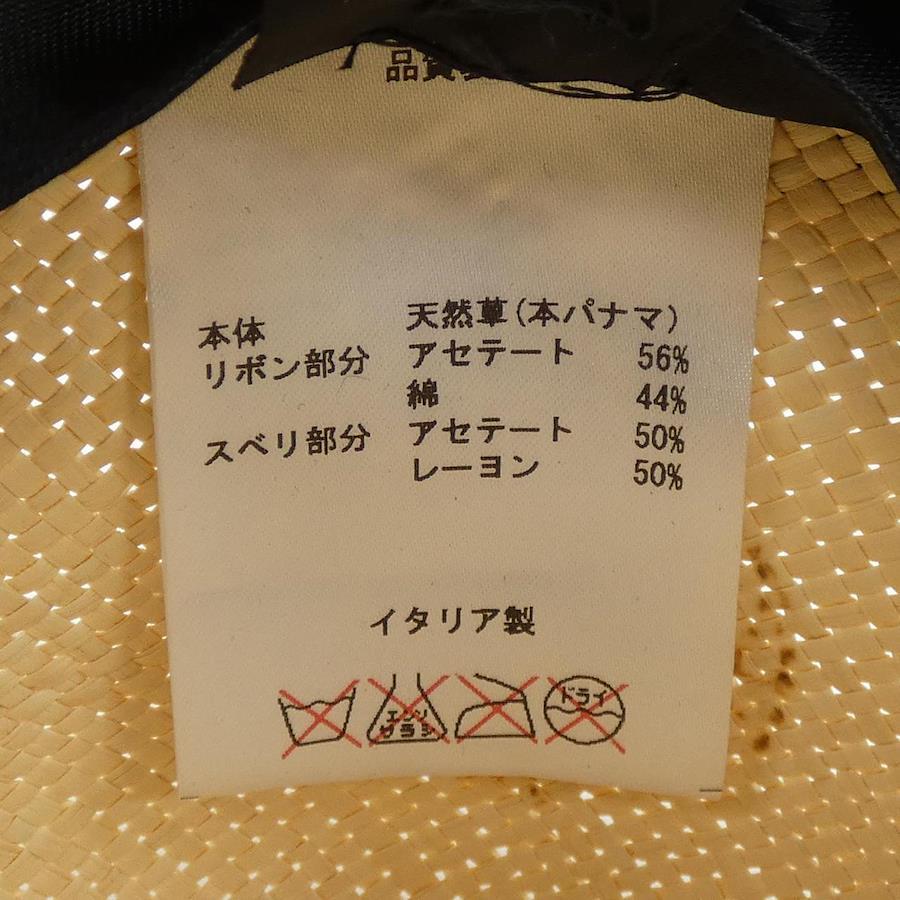 品質
本体 天然草(本パナマ)
リボン部分 アセテート 56%
綿 44%
スベリ部分 アセテート 50%
レーヨン 50%
イタリア製
エンソ
サラシ
ドライ